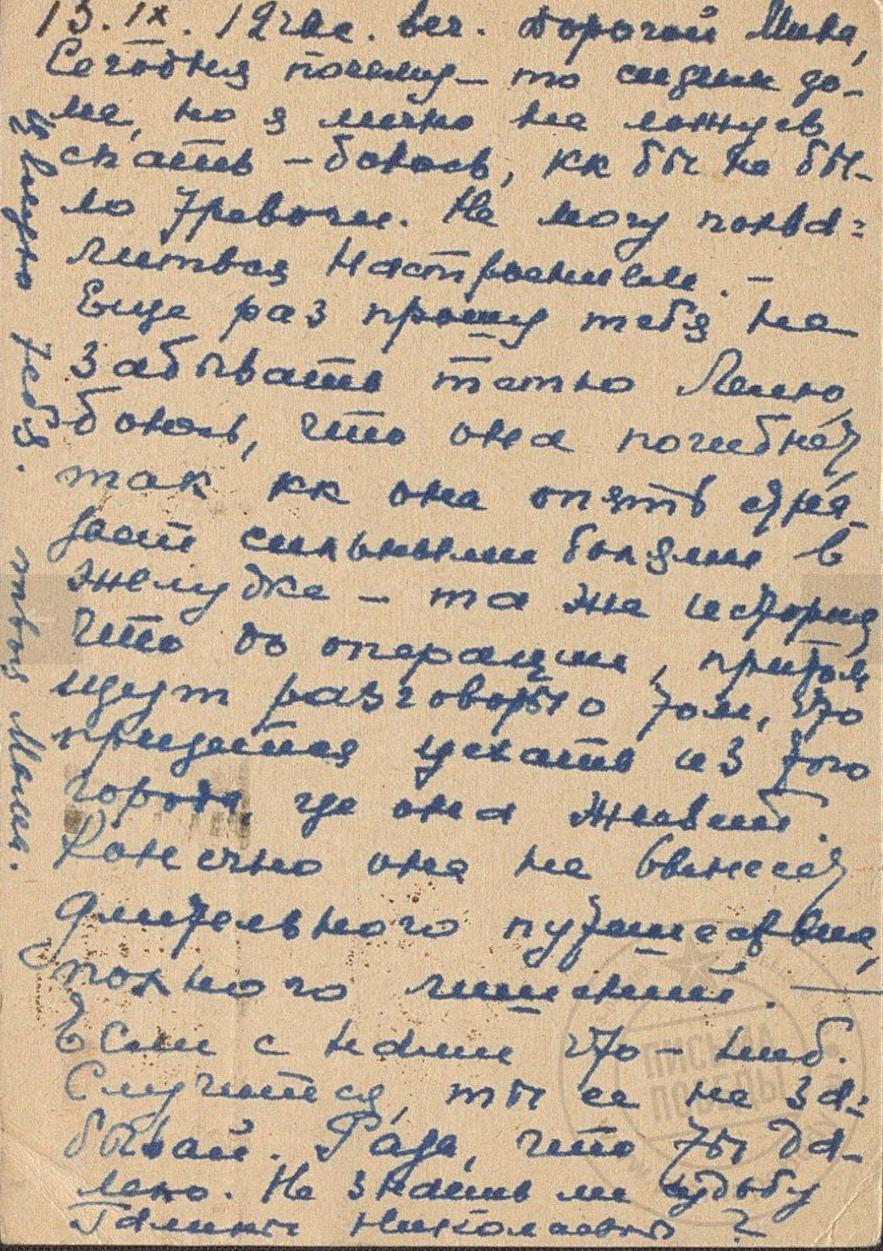 13.IX. 12 час. веч. Дорогой Миша,
Сегодня почему-то сидим до-
ма, но я лично не ложусь
спать – боюсь, кк бы не бы-
ло тревоги. Не могу похва-
литься настроением. –
Еще раз прошу тебя не
забывать тетю Лелю,
боюсь, что она погибнет,
так кк она опять стра-
дает сильными болями в
желудке – та же история
что до операции, притом
идут разговоры о том, что
придется уехать из того
города, где она живет.
Конечно она не вынесет
длительного путешествия,
полного лишений. —
Если с нами что-ниб.
случится, ты ее не за-
бывай. Рада, что ты да-
леко. Не знаешь ли судьбу
Галины Николаевны?
Целую тебя. твоя Мама.
ПИСЬМА
ПОБЕДЫ